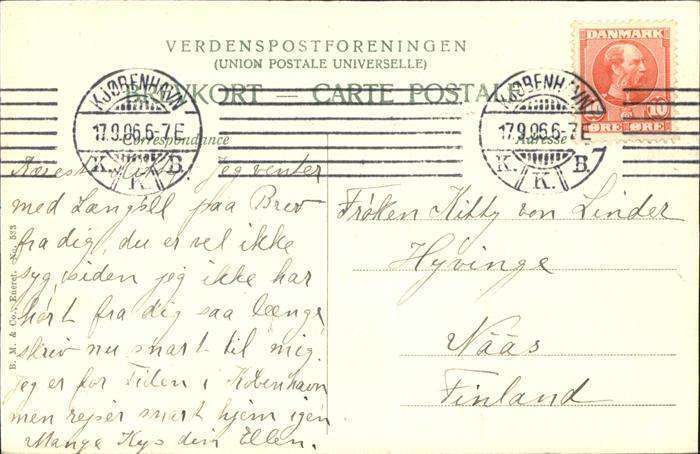 VERDENSPOSTFORENINGEN
(UNION POSTALE UNIVERSELLE)
BREVKORT — CARTE POSTALE
DANMARK
10 10
ØRE ØRE
KJØBENHAVN
17.9.06.6-7E
K. K. B.
KJØBENHAVN
17.9.06.6-7E
K. K. B.
Correspondance
Adresse
7
Kæreste Kitty Jeg venter
med Længsel paa Brev
fra dig, du er vel ikke
syg, siden jeg ikke har
hørt fra dig saa længe
skriv nu snart til mig.
Jeg er for Tiden i København
men rejser snart hjem igen
Mange Kys din Ellen.
Frøken Kitty von Linder
Hyvinge
Nääs
Finland
B. M. & Co., Eneret. No. 533